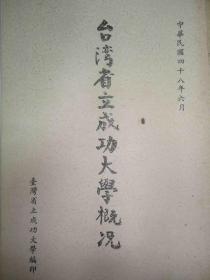 中華民國四十八年六月
台湾省立成功大學概况
臺灣省立成功大學編印